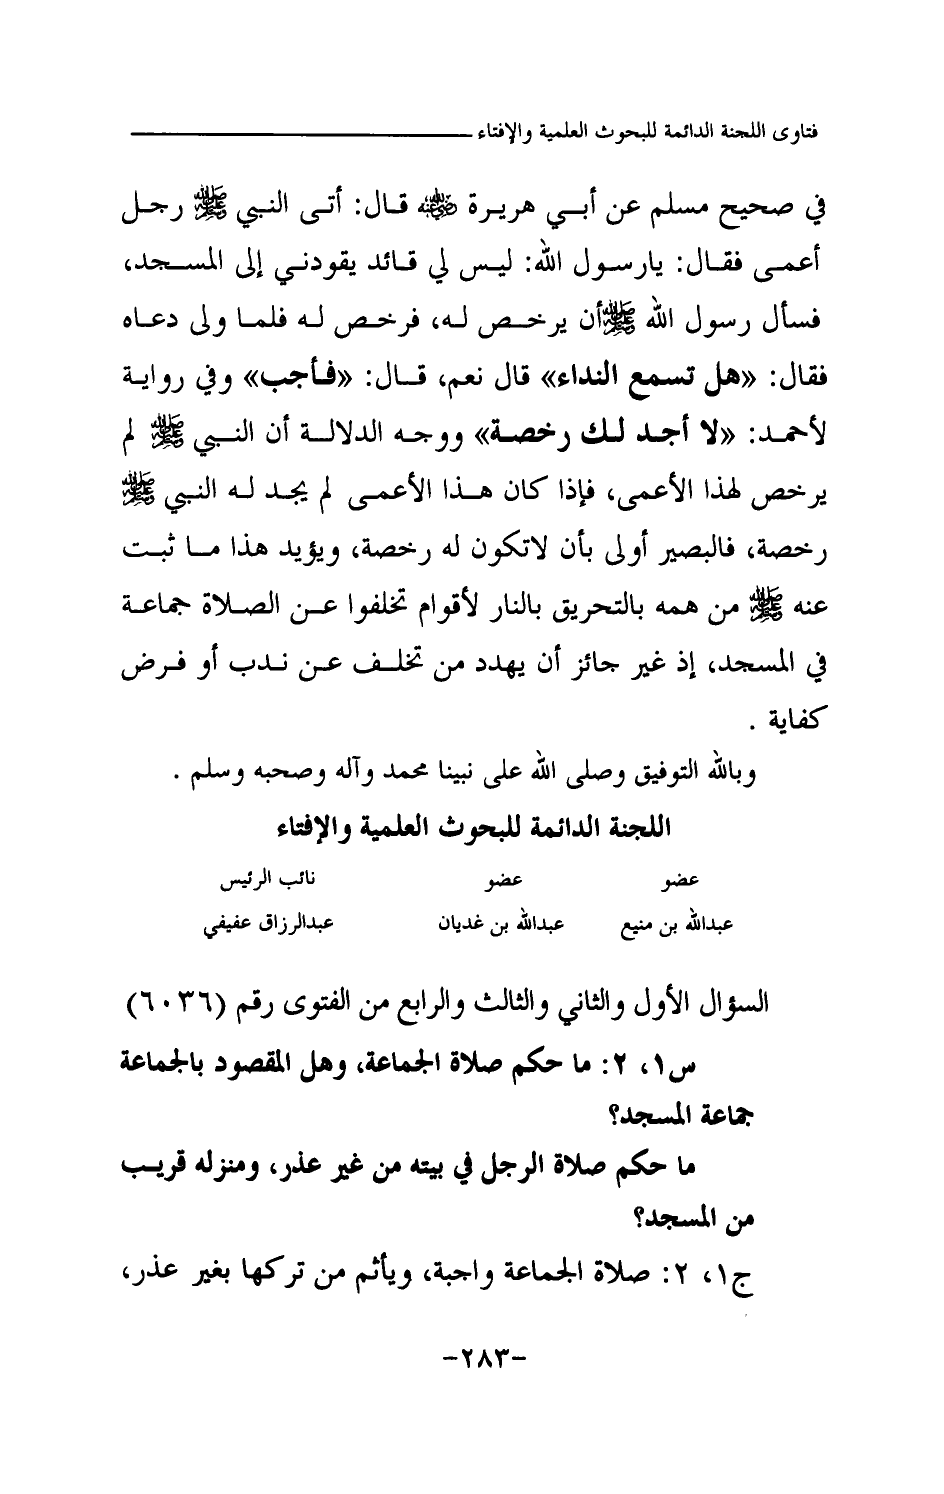 فتاوى اللجنة الدائمة للبحوث العلمية والإفتاء
في صحيح مسلم عن أبي هريرة رضي الله عنه قال: أتى النبي ﷺ رجل
أعمى فقال: يارسول الله: ليس لي قائد يقودني إلى المسجد،
فسأل رسول الله ﷺ أن يرخص له، فرخص له فلما ولى دعاه
فقال: «هل تسمع النداء» قال نعم، قال: «فأجب» وفي رواية
لأحمد: «لا أجد لك رخصة» ووجه الدلالة أن النبي ﷺ لم
يرخص لهذا الأعمى، فإذا كان هذا الأعمى لم يجد له النبي ﷺ
رخصة، فالبصير أولى بأن لاتكون له رخصة، ويؤيد هذا ما ثبت
عنه ﷺ من همه بالتحريق بالنار لأقوام تخلفوا عن الصلاة جماعة
في المسجد، إذ غير جائز أن يهدد من تخلف عن ندب أو فرض
كفاية .
وبالله التوفيق وصلى الله على نبينا محمد وآله وصحبه وسلم .
اللجنة الدائمة للبحوث العلمية والإفتاء
عضو عضو نائب الرئيس
عبدالله بن منيع عبدالله بن غديان عبدالرزاق عفيفي
السؤال الأول والثاني والثالث والرابع من الفتوى رقم (٦٠٣٦)
س١، ٢: ما حكم صلاة الجماعة، وهل المقصود بالجماعة
جماعة المسجد؟
ما حكم صلاة الرجل في بيته من غير عذر، ومنزله قريب
من المسجد؟
ج١، ٢: صلاة الجماعة واجبة، ويأثم من تركها بغير عذر،
-٢٨٣-